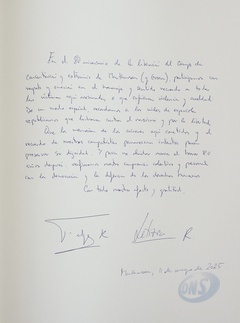 En el 80 aniversario de la liberación del Campo de
Concentración y exterminio de Mauthausen (y Gusen), participamos con
respeto y emoción en el homenaje y sentido recuerdo a todas
las víctimas aquí asesinadas o que sufrieron violencia y crueldad.
De un modo especial, recordamos a los miles de españoles
republicanos que lucharon contra el nazismo y por la libertad.
Que la memoria de los crímenes aquí cometidos y el
recuerdo de nuestros compatriotas permanezcan intactos para
preservar su dignidad. Y para no olvidar nunca el horror. 80
años después reafirmamos nuestro compromiso absoluto y permanente
con la democracia y la defensa de los derechos humanos.
Con todo nuestro afecto y gratitud.
Felipe R.
Letizia R.
Mauthausen, 11 de mayo de 2025